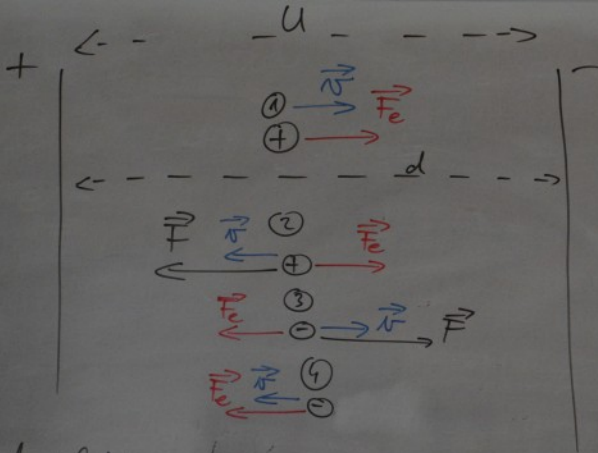 U
+ −
① v⃗
+ F⃗e
d
F⃗ v⃗ ② F⃗e
+
F⃗e ③
− v⃗ F⃗
F⃗e v⃗ ④
−